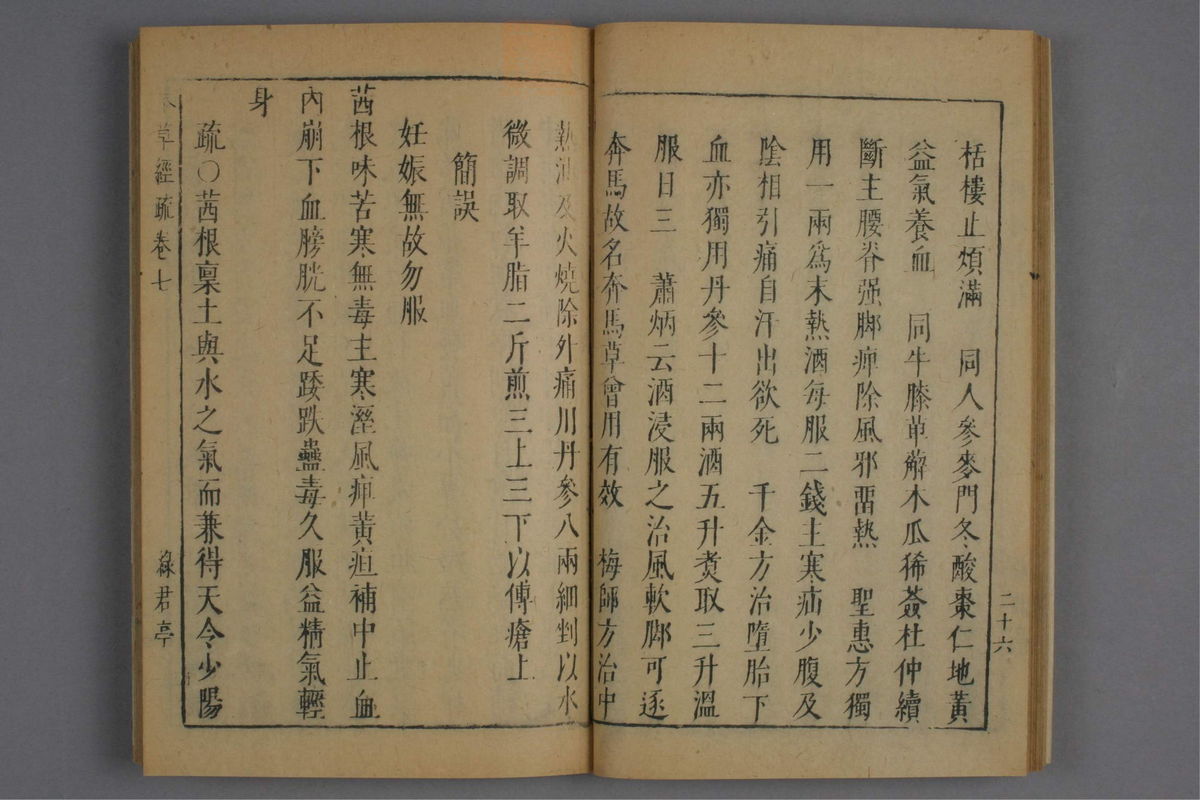 栝樓止煩滿　同人參麥門冬酸棗仁地黃
益氣養血　同牛膝萆薢木瓜豨薟杜仲續
斷主腰脊强脚痺除風邪畱熱　聖惠方獨
用一兩爲末熱酒每服二錢主寒疝少腹及
陰相引痛自汗出欲死　千金方治墮胎下
血亦獨用丹參十二兩酒五升煑取三升溫
服日三　蕭炳云酒浸服之治風軟脚可逐
奔馬故名奔馬草曾用有效　梅師方治中
二十六
熱油及火燒除外痛用丹參八兩細剉以水
微調取羊脂二斤煎三上三下以傅瘡上
簡誤
妊娠無故勿服
茜根味苦寒無毒主寒溼風痺黃疸補中止血
內崩下血膀胱不足踒跌蠱毒久服益精氣輕
身
疏○茜根稟土與水之氣而兼得天令少陽
本草經疏卷七
綠君亭